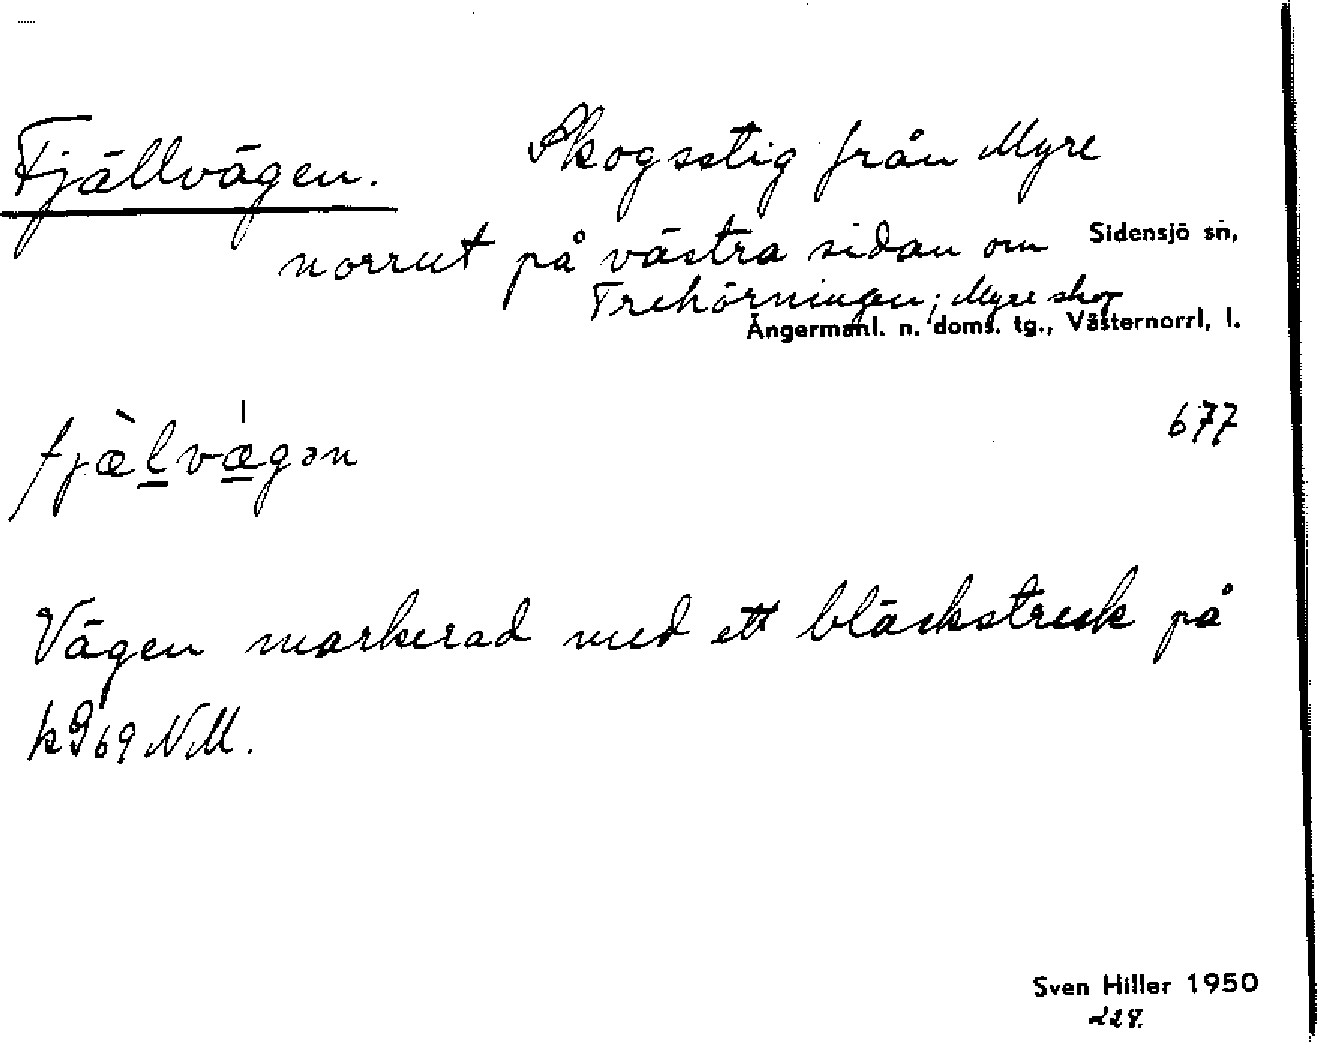 Fjällvägen. Skogsstig från Myre
norrut på västra sidan om Sidensjö sn,
Trehörningen; Myre skog
Ångermanl. n. doms. tg., Västernorrl. l.
677
fjæ̀l̲vǽ̲gən
Vägen markerad med ett bläckstreck på
k969NM.
Sven Hiller 1950